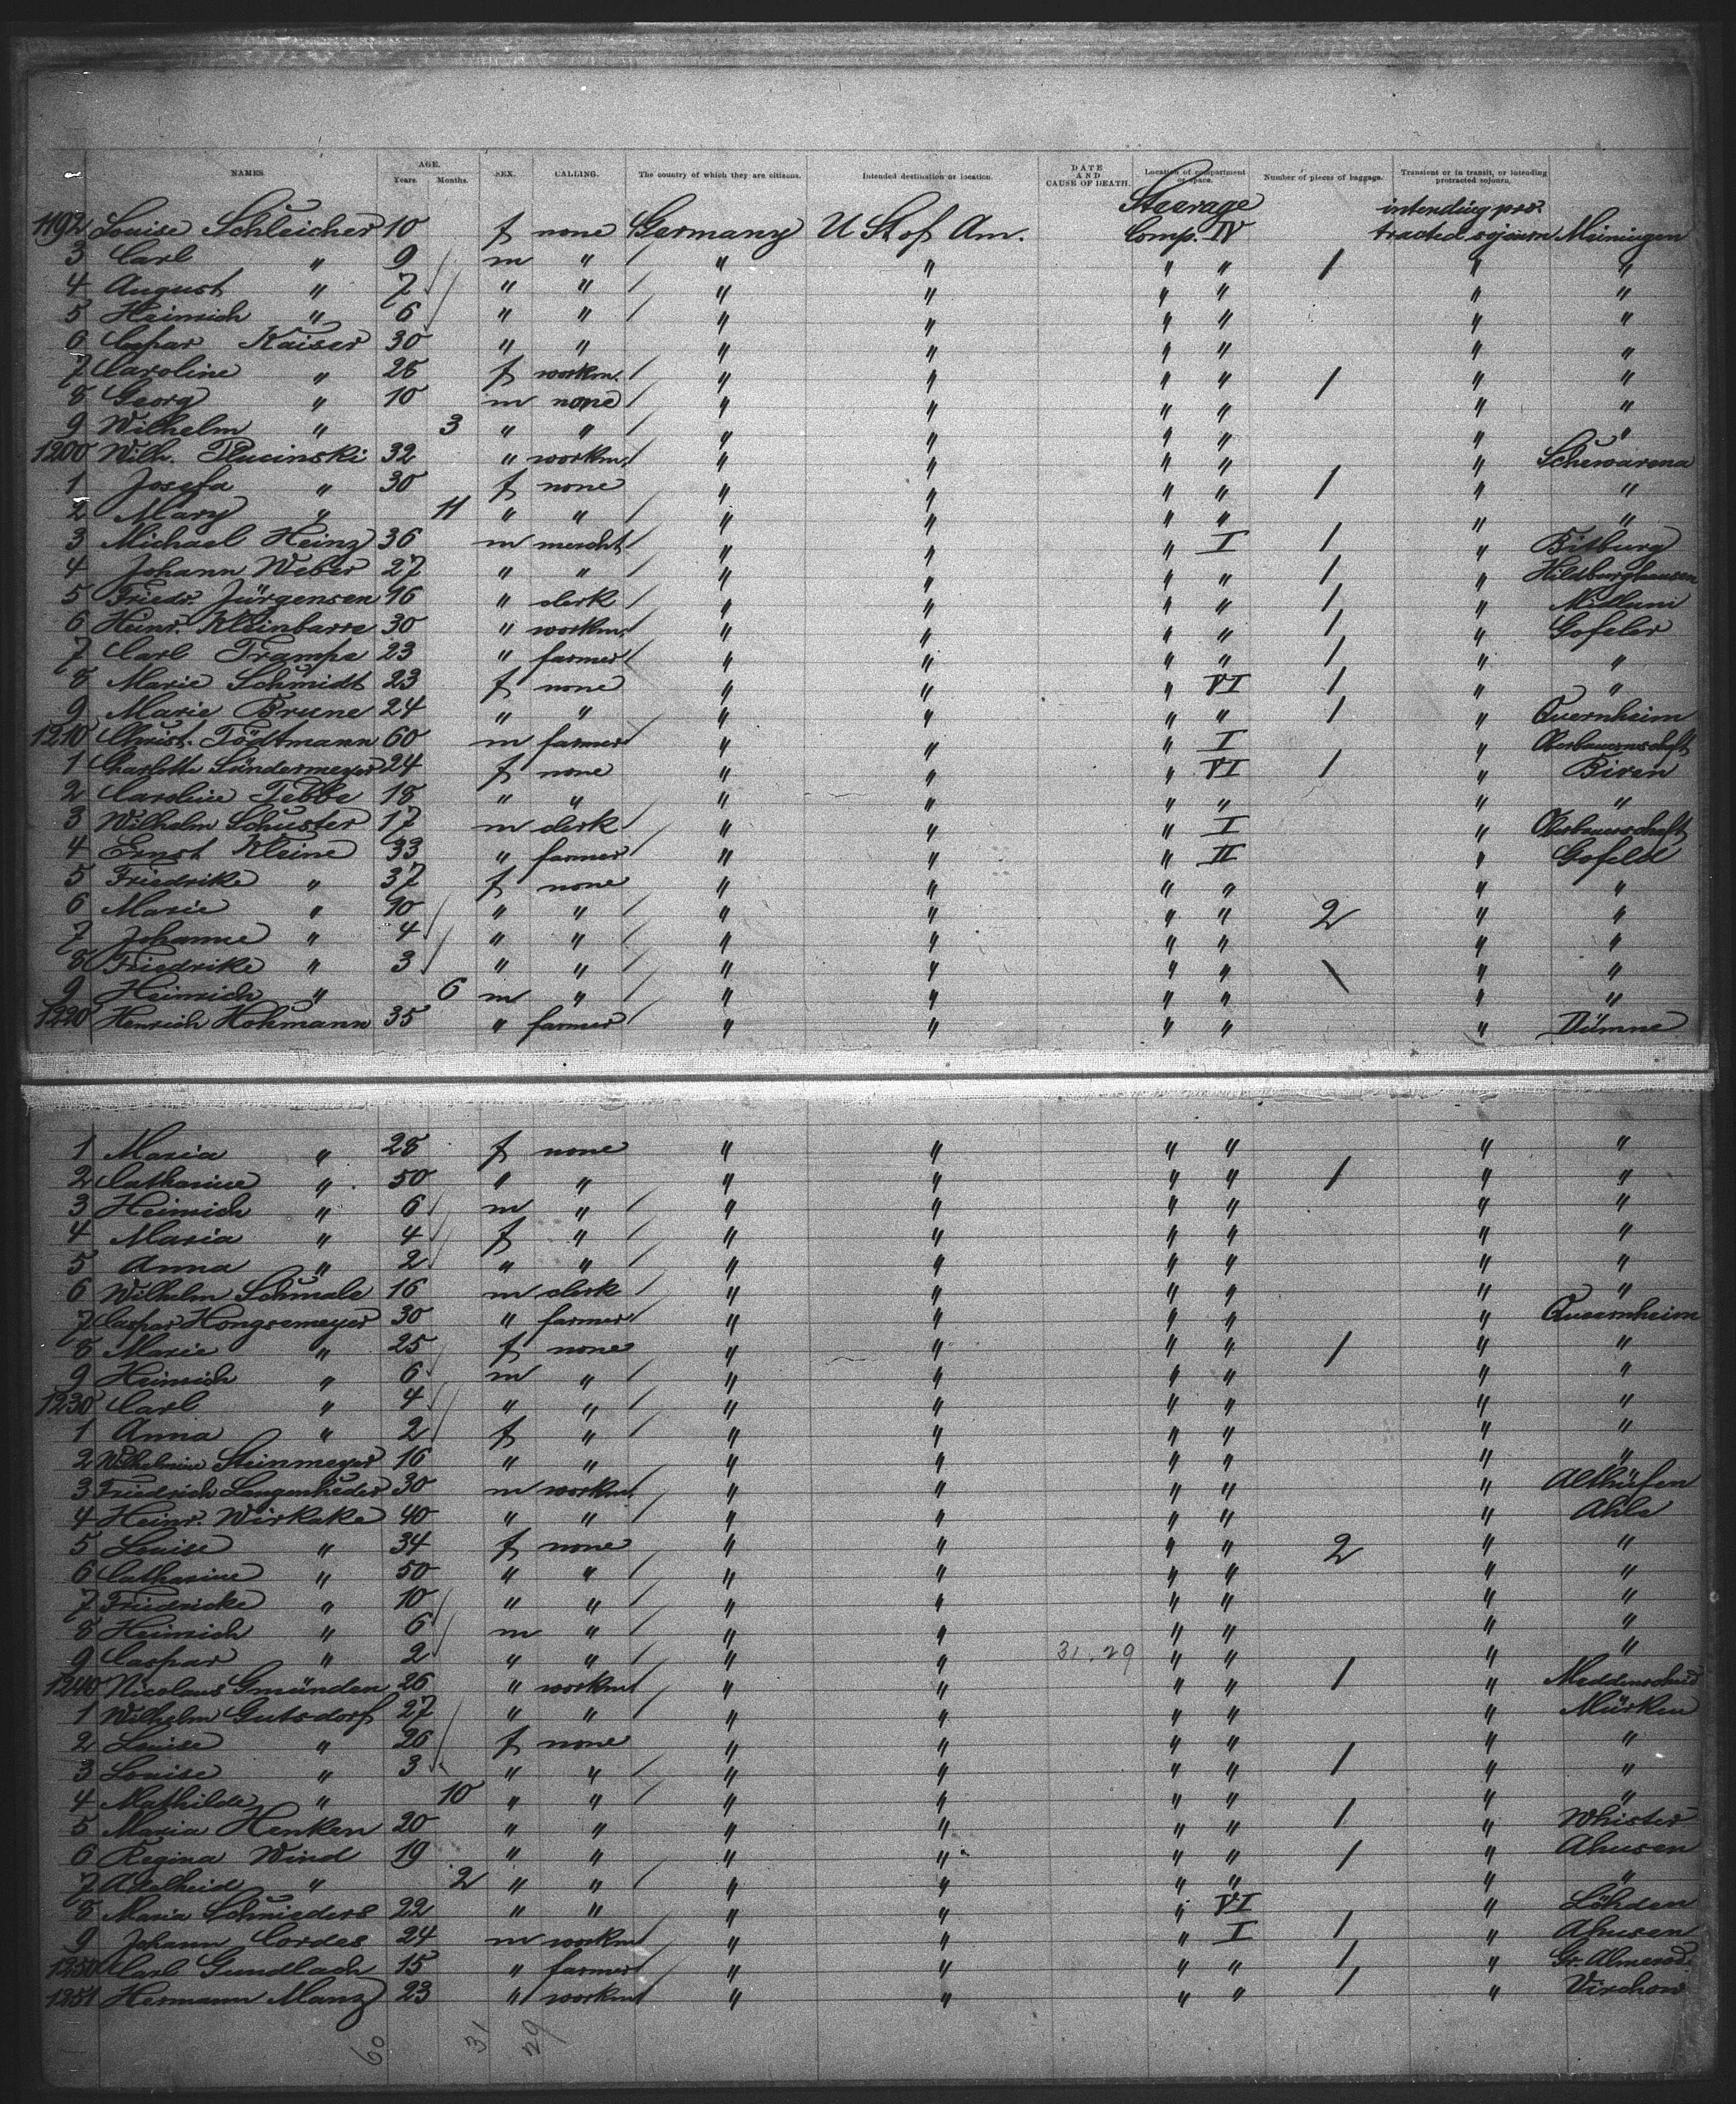 NAMES. AGE. Years. Months. SEX. CALLING. The country of which they are citizens. Intended destination or location. DATE AND CAUSE OF DEATH. Location of compartment or space. Number of pieces of baggage. Transient or in transit, or intending protracted sojourn.
Steerage intending pro-
1192 Louise Schleicher 10 f none Germany U St of Am. Comp. IV tracted sojourn Meiningen
3 Carl " 9 m " " " " " / " "
4 August " 7 " " " " " " " "
5 Heinrich " 6 " " " " " " " "
6 Caspar Kaiser 30 " " " " " " " "
7 Caroline " 26 f workm. " " " " / " "
8 Georg " 10 m none " " " " " "
9 Wilhelm " 3 " " " " " " " "
1200 Wilh. Plucinski 32 " workm. " " " " " Schewarena
1 Josefa " 30 f none " " " " / " "
2 Mary " 11 " " " " " " " "
3 Michael Heinz 36 m mercht " " " I / " Bitburg
4 Johann Weber 27 " " " " " " / " Hildburghausen
5 Friedr. Jürgensen 16 " clerk " " " " / " Midlum
6 Heinr. Kleinbarre 30 " workm. " " " " / " Gofeler
7 Carl Trampe 23 " farmer " " " " / " "
8 Marie Schmidt 23 f none " " " VI / " "
9 Marie Brune 24 " " " " " " / " Quernheim
1210 Christ. Tödtmann 60 m farmer " " " I " Oberbauernschaft
1 Charlotte Sündermeyer 24 f none " " " VI / " Biren
2 Caroline Tebbe 18 " " " " " " " "
3 Wilhelm Schuster 17 m clerk " " " I " Oberbauerschaft
4 Ernst Kleine 33 " farmer " " " II " Gofeld
5 Friedrike " 37 f none " " " " " "
6 Marie " 10 " " " " " " 2 " "
7 Johanne " 4 " " " " " " " "
8 Friedrike " 3 " " " " " " \ " "
9 Heinrich " 6 m " " " " " " "
1220 Henrich Hohmann 35 " farmer " " " " " Dümne
1 Maria " 28 f none " " " " " "
2 Catharine " 50 " " " " " " / " "
3 Heinrich " 6 m " " " " " " "
4 Maria " 4 f " " " " " " "
5 Anna " 2 " " " " " " " "
6 Wilhelm Schmale 16 m clerk " " " " " "
7 Caspar Hongsemeyer 30 " farmer " " " " " Quernheim
8 Marie " 25 f none " " " " / " "
9 Heinrich " 6 m " " " " " " "
1230 Carl " 4 " " " " " " " "
1 Anna " 2 f " " " " " " "
2 Wilhelmine Steinmeyer 16 " " " " " " " "
3 Friedrich Langenheder 30 m workm " " " " " Althüfen
4 Heinr. Wirkake 40 " " " " " " " Ahle
5 Louise " 34 f none " " " " 2 " "
6 Catharine " 50 " " " " " " " "
7 Friedricke " 10 " " " " " " " "
8 Heinrich " 6 m " " " " " " "
9 Caspar " 2 " " " " 31.29 " " " "
1240 Nicolaus Gmünden 26 " workm " " " " / "
1 Wilhelm Gutsdorf 27 " " " " " " " Mürken
2 Louise " 26 f none " " " " " "
3 Louise " 3 " " " " " " / " "
4 Mathilde " 10 " " " " " " " "
5 Maria Henken 20 " " " " " " / " Whister
6 Regina Wind 19 " " " " " " / " Ahusen
7 Adelheid " 2 " " " " " " " "
8 Maria Schnieders 22 " " " " " VI " Löhden
9 Johann Cordes 24 m workm " " " I / " Ahusen
1250 Carl Gundlach 15 " farmer " " " " / " Gr. Almerod.
1251 Hermann Manz 23 " workm " " " " / " Virchow
60 31 29